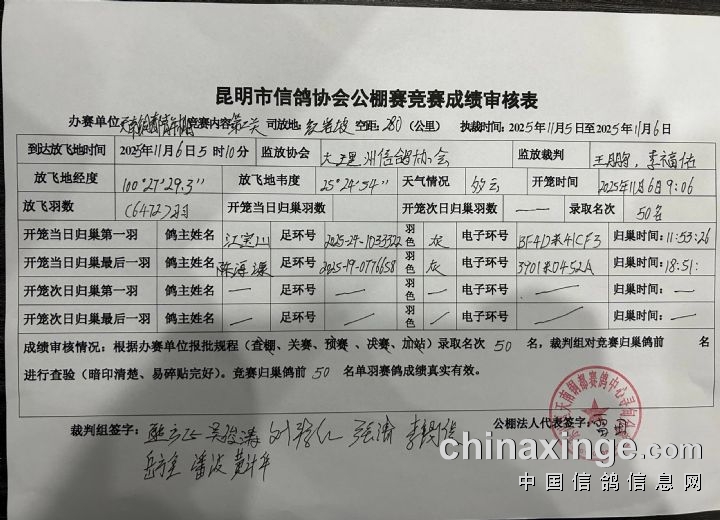 昆明市信鸽协会公棚赛竞赛成绩审核表
办赛单位 竞赛内容 第一关 司放地: 空距: 280 (公里) 执裁时间: 2025年11月5日至2025年11月6日
到达放飞地时间 2025年11月6日5时10分 监放协会 大理州信鸽协会 监放裁判 李福佑
放飞地经度 100°27′29.3″ 放飞地韦度 25°24′54″ 天气情况 多云 开笼时间 2025年11月6日9:06
放飞羽数 (6472)羽 开笼当日归巢羽数 开笼次日归巢羽数 — 录取名次 50名
开笼当日归巢第一羽 鸽主姓名 江宝川 足环号 2025-29-1033322 羽色 灰 电子环号 BF4D来41CF3 归巢时间: 11:53:26
开笼当日归巢最后一羽 鸽主姓名 足环号 2025-19-0776658 羽色 灰 电子环号 3901来D452A 归巢时间: 18:51:
开笼次日归巢第一羽 鸽主姓名 — 足环号 — 羽色 — 电子环号 — 归巢时间: —
开笼次日归巢最后一羽 鸽主姓名 — 足环号 — 羽色 — 电子环号 — 归巢时间: —
成绩审核情况: 根据办赛单位报批规程 (查棚、关赛、预赛、决赛、加站) 录取名次 50 名, 裁判组对竞赛归巢鸽前 名
进行查验 (暗印清楚、易碎贴完好)。竞赛归巢鸽前 50 名单羽赛鸽成绩真实有效。
裁判组签字: 张涛 公棚法人代表签字:
潘波
chinaxinge.com
中国信鸽信息网